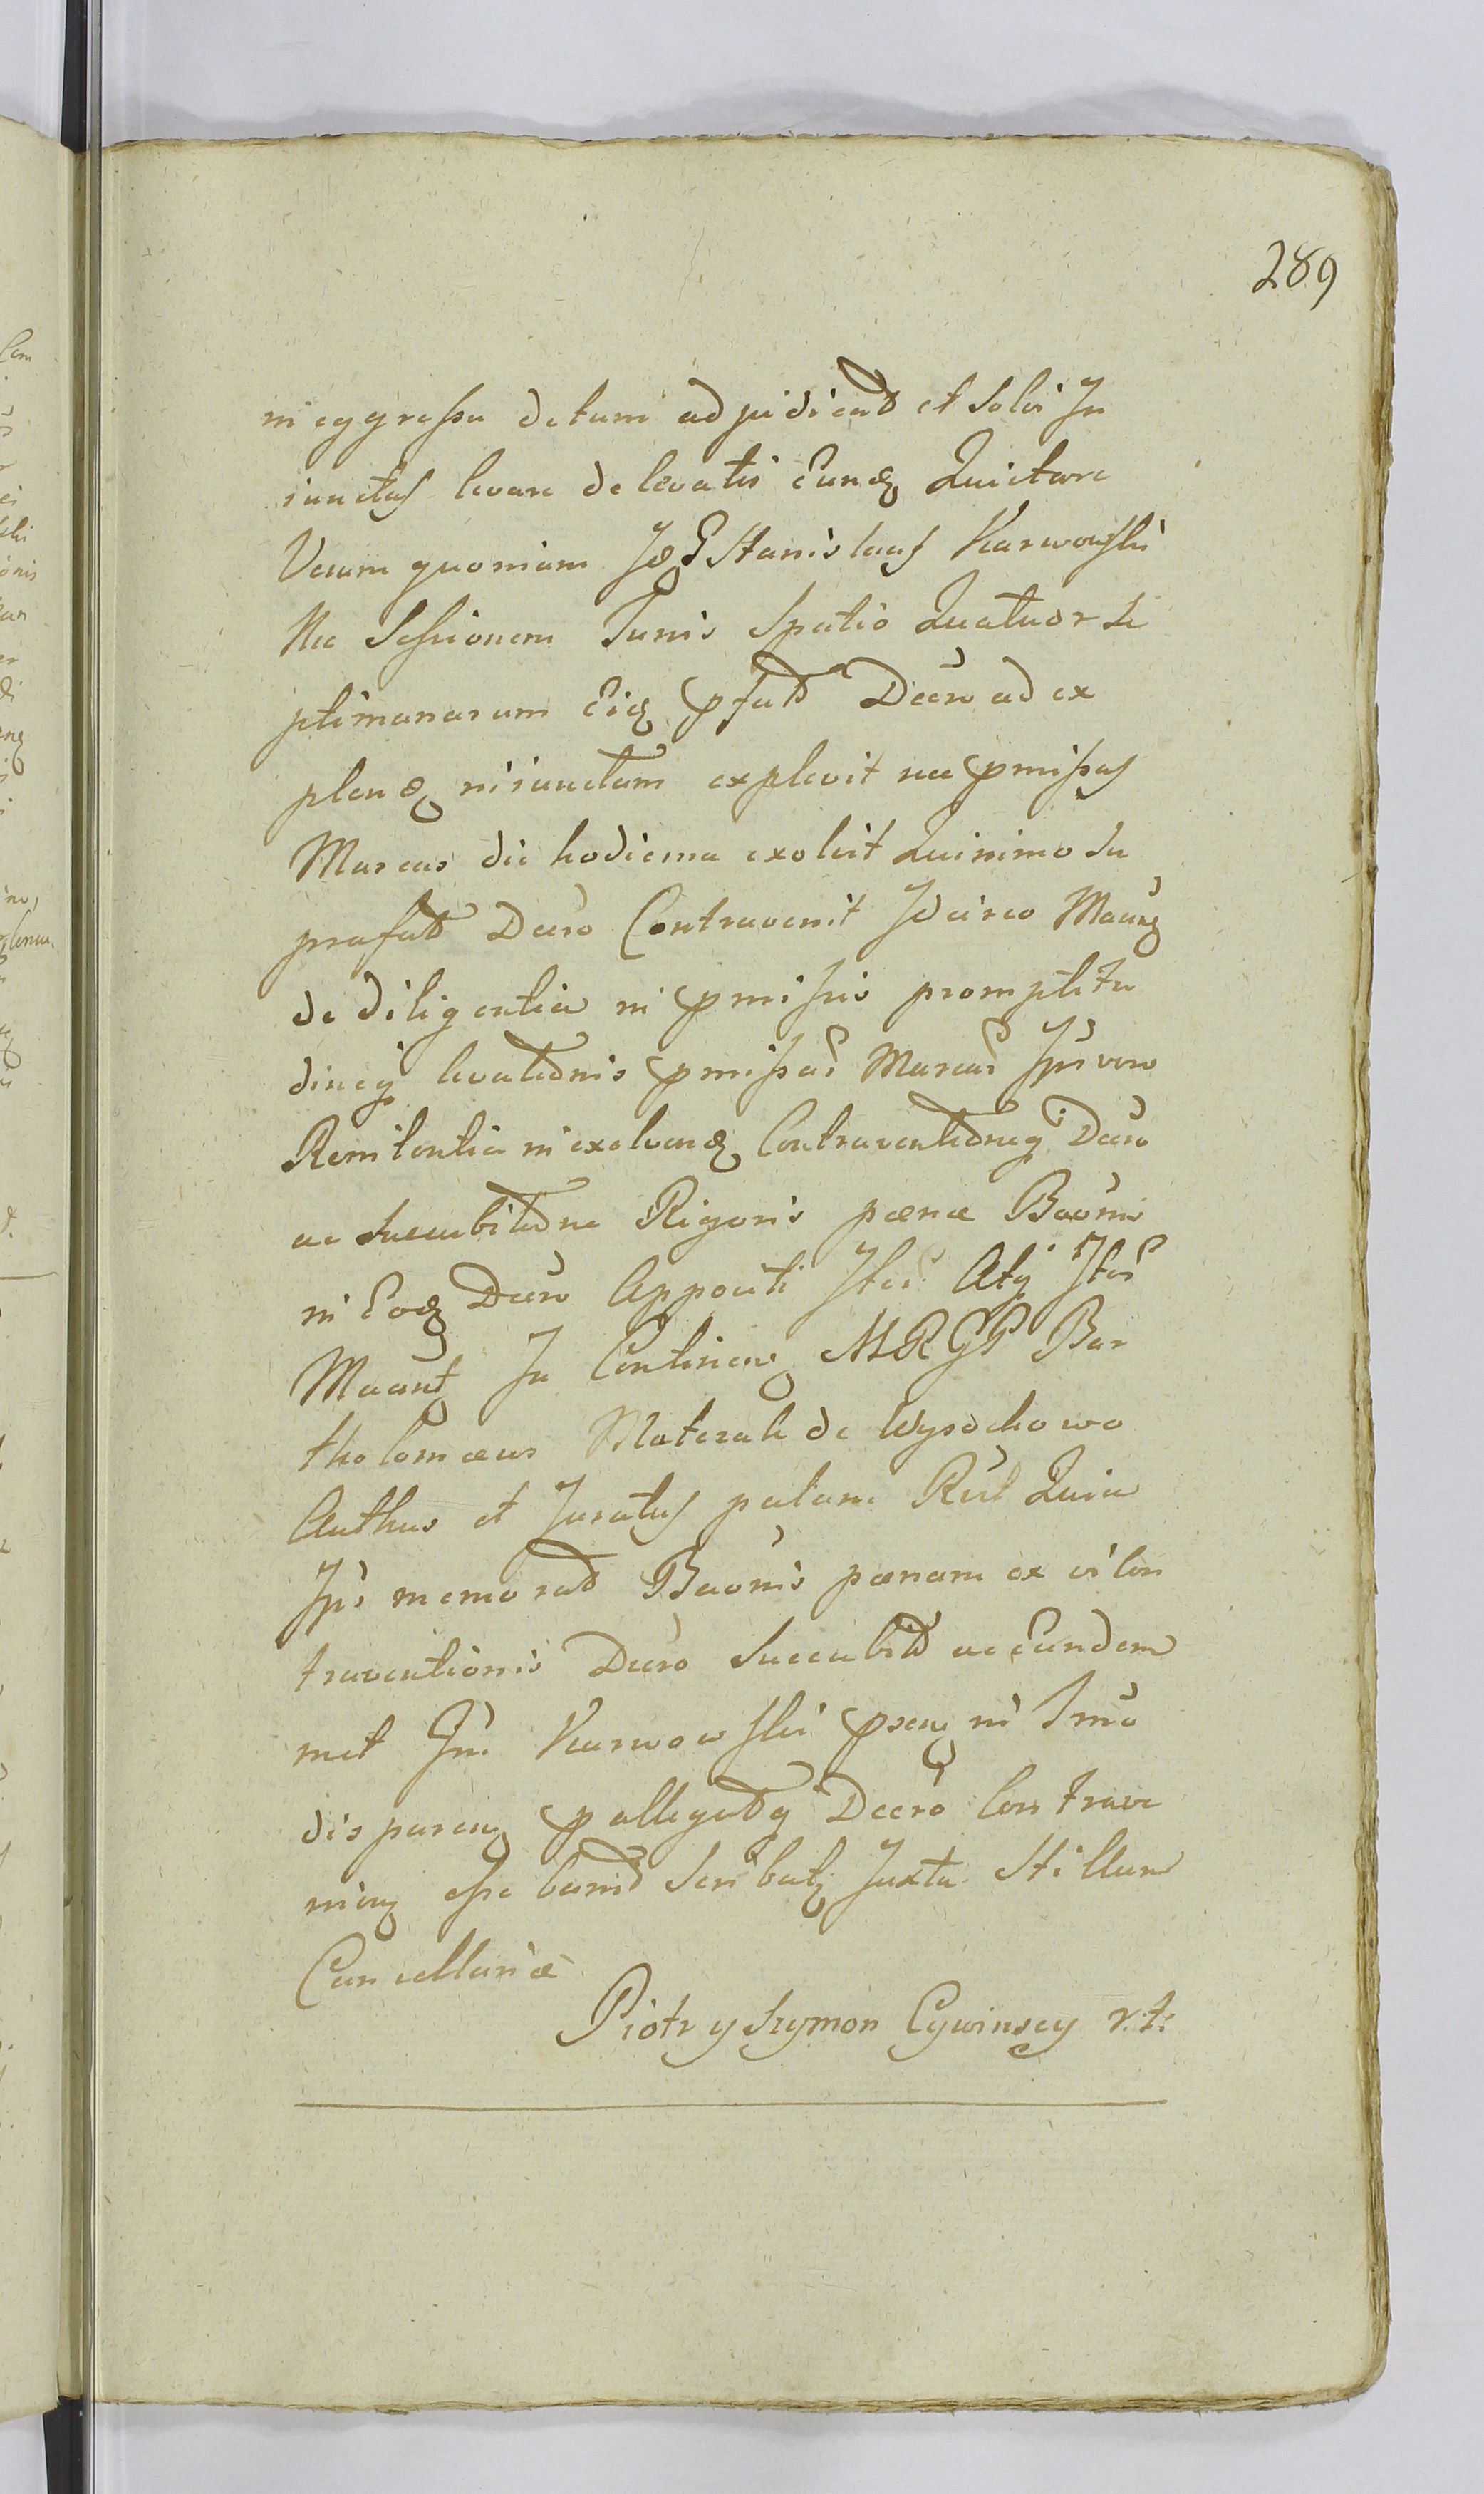 289
in eggressu detum adjudicat et solvi In
iunctas levare de levatis Eund Quietare
Verum quoniam Id G Stanislaus Karwowski
Nec Sessionem Turris Spatio Quatuor Se
ptimanarum Eid pfat Decro ad ex
plend iniunctam explevit nec pmissas
Marcas die hodierna exolvit Quinimo su
prafat Decro Contravenit Idcirco Maand
de diligentia in pmissis promptitu
dineq levationis pmissar Marcar Ipi vero
Renitentia in exolvend Contraventioneq Decro
ac succubitione Rigoris pænæ Baonis
in Eod Decro Appositi Iter Atq Iter
Maand In Continen MRGP Bar
tholomæus Materak de Wysochowo
Authus et Juratus palam Rul Quia
Ipi memorat Baonis pænam ex vi Con
traventionis Decro succubit ac Eundem
met Gn Karwowski psen in Irmo
disparen p allegatq Decro Contrave
nien esse banit Scribatz Juxta Stillum
Cancellariæ
Piotr y Szymon Cywinscy r.t: